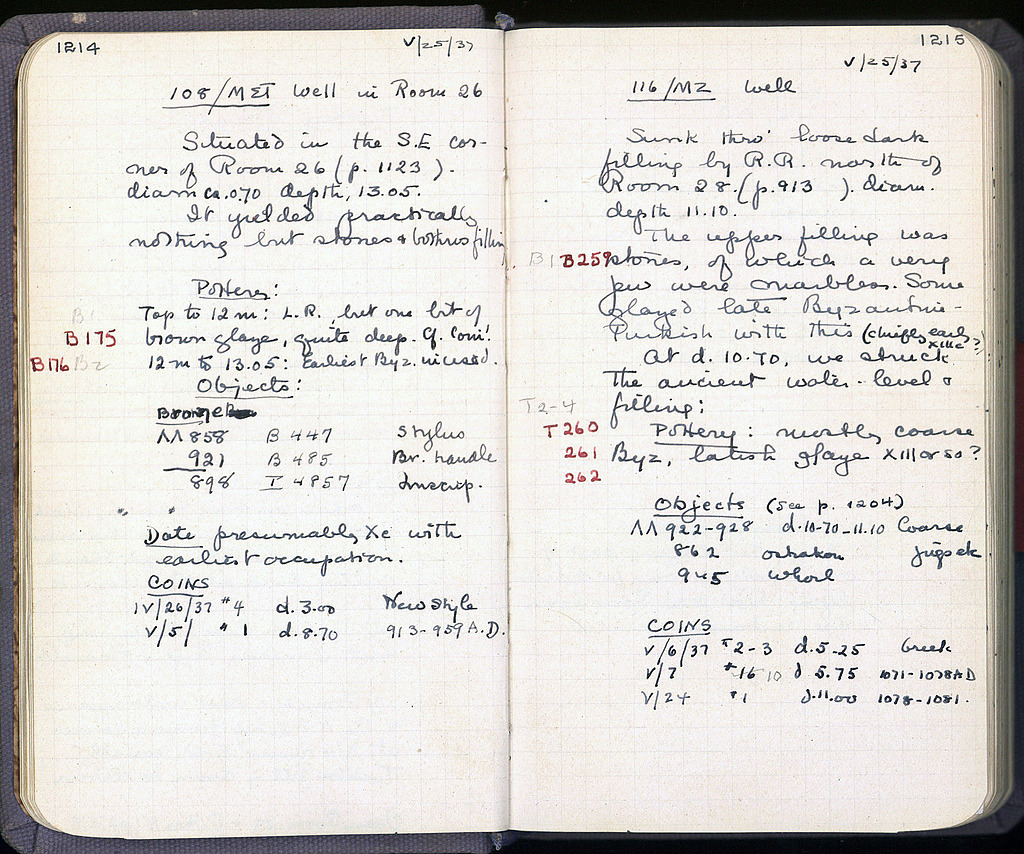 1214
V/25/37
108/MΣT Well in Room 26
Situated in the S.E cor-
ner of Room 26 (p. 1123 ).
diam ca. 0.70 depth, 13.05.
It yielded practically
nothing but stones & bothros filling
Pottery:
B1 Top to 12 m: L.R., but one bit of
B175 brown glaze, quite deep. Cf. Coin!
B176 B2 12 m to 13.05: Earliest Byz. incised.
Objects:
Bronze
ΛΛ 858 B 447 Stylus
921 B 485 Br. handle
898 I 4857 Inscrip.
" "
Date presumably Xc with
earliest occupation.
COINS
IV/26/37 #4 d. 3.00 New Style
V/5/ " 1 d. 8.70 913-959 A.D.
1215
V/25/37
116/MZ Well
Sunk thro' loose dark
filling by R.R. north of
Room 28. (p. 913 ). diam.
depth 11.10.
The upper filling was
B1 B259 stones, of which a very
few were marbles. Some
glazed late Byzantine-
Turkish with this (chiefly early XIIIc?)
At d. 10.70, we struck
the ancient water-level &
T2-4 filling:
T 260 Pottery: mostly coarse
261 Byz, latish glaze XIII or so?
262
Objects (see p. 1204)
ΛΛ 922-928 d. 10-70-11.10 Coarse
862 ostrakon jugs etc
945 whorl
COINS
V/6/37 #2-3 d. 5-25 Greek
V/7 #16 10 d 5.75 1071-1078 AD
V/24 #1 d. 11.00 1078-1081.